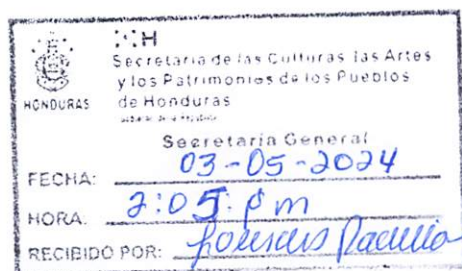 H
Secretaría de las Culturas las Artes
y los Patrimonios de los Pueblos
de Honduras
HONDURAS
Secretaría General
FECHA: 03-05-2024
HORA: 2:05 pm
RECIBIDO POR: Padilla